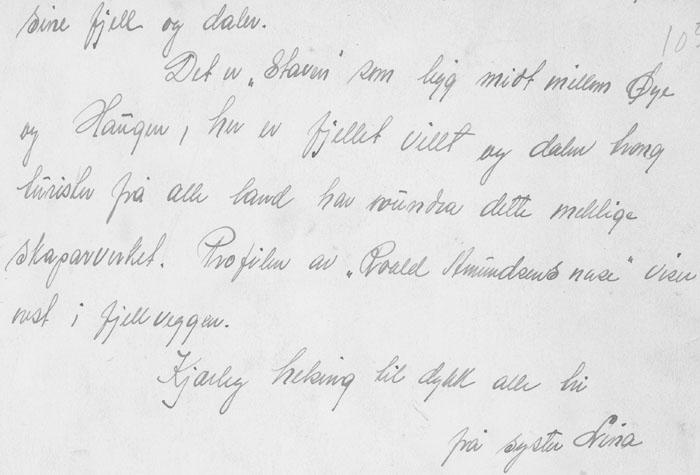 sine fjell og daler.
Det er „Staven" som ligg midt millom Øye
og Haugen, her er fjellet villt og dalen trong
turister frå alle land har undra dette mektige
skaparverket. Profilen av „Roald Amundsens nase" viser
vest i fjellveggen.
Kjærleg helsing til dykk alle
frå syster Nina